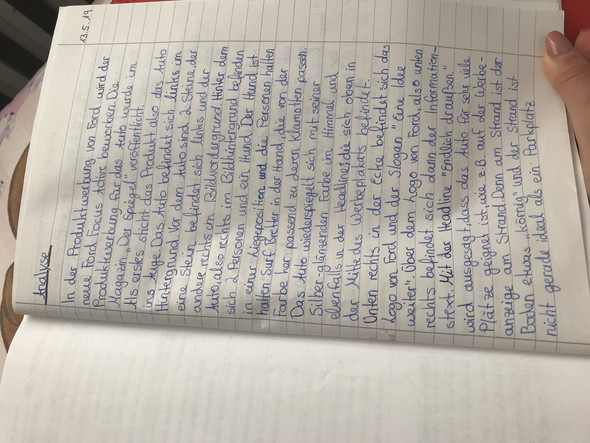 13.5.19
Analyse
In der Produktwerbung von Ford, wird der
neue Ford Focus Active beworben. Die
Produktwerbung für das Auto wurde im
Magazin „Der Spiegel" veröffentlicht.
Als erstes sticht das Produkt also das Auto
ins Auge. Das Auto befindet sich links im
Hintergrund. Vor dem Auto sind 2 Steine der
eine Stein befindet sich links und der
andere rechts im Bildvordergrund. Hinter dem
Auto, also rechts im Bildhintergrund befinden
sich 2 Personen und ein Hund. Der Hund ist
in einer Liegeposition und die Personen halten
halten Surf Bretter in der Hand, die von der
Farbe her passend zu deren Klamotten passen.
Das Auto wiederspiegelt sich mit seiner
Silber glänzenden Farbe im Himmel und
ebenfalls in der Headline, die sich oben in
der Mitte des Werbeplakats befindet.
Unten rechts in der Ecke befindet sich das
Logo von Ford und der Slogan „Eine Idee
weiter". Über dem Logo von Ford, also unten
rechts befindet sich dann der Information-
stext. Mit der Headline „Endlich draußen"
wird ausgesagt, dass das Auto für sehr viele
Plätze geignet ist, wie z.B auf der Werbe-
anzeige am Strand. Denn am Strand ist der
Boden etwas „körnig" und der Strand ist
nicht gerade ideal als ein Parkplatz